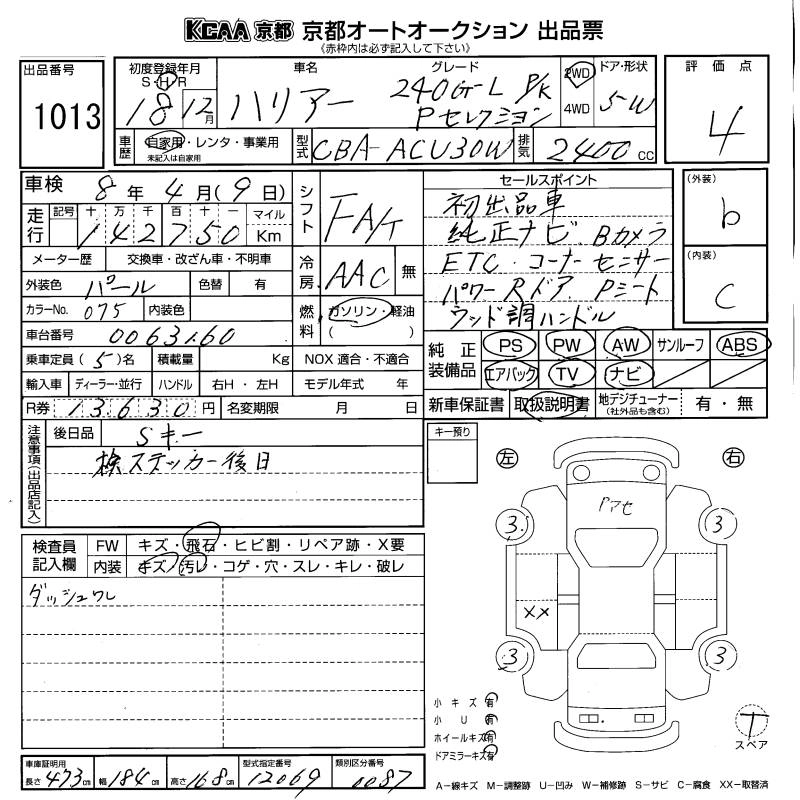 KCAA 京都 京都オートオークション 出品票
《赤枠内は必ず記入して下さい》
出品番号
1013
初度登録年月
S・H・R
18年12月
車名
ハリアー
グレード
240G-L P/K
Pセレクション
2WD
4WD
ドア・形状
5-W
評価点
4
車歴
自家用・レンタ・事業用
未記入は自家用
型式
CBA-ACU30W
排気
2400cc
車検
8年4月(9日)
走行
記号 十 万 千 百 十 一 マイル
142750 Km
シフト
FA/T
セールスポイント
初出品車
純正ナビ、Bカメラ
ETC・コーナーセンサー
パワーRドア、Pシート
ウッド調ハンドル
(外装)
b
(内装)
C
メーター歴 交換車・改ざん車・不明車
冷房
AAC
無
外装色 パール 色替 有
カラーNo. 075 内装色
燃料
ガソリン・軽油
( )
車台番号 0063160
乗車定員(5)名 積載量 Kg NOX 適合・不適合
輸入車 ディーラー・並行 ハンドル 右H・左H モデル年式 年
R券 13,630円 名変期限 月 日
純正装備品
PS PW AW サンルーフ ABS
エアバック TV ナビ
新車保証書 取扱説明書 地デジチューナー(社外品も含む) 有・無
注意事項(出品店記入)
後日品 Sキー
検ステッカー後日
キー預り
左
右
Pアセ
3 3
XX
3 3
検査員記入欄
FW キズ・飛石・ヒビ割・リペア跡・X要
内装 キズ・汚レ・コゲ・穴・スレ・キレ・破レ
ダッシュワレ
小キズ有
小U有
ホイールキズ有
ドアミラーキズ有
T
スペア
車庫証明用
長さ473cm 幅184cm 高さ168cm
型式指定番号
12069
類別区分番号
0087
A―線キズ M―調整跡 U―凹み W―補修跡 S―サビ C―腐食 XX―取替済